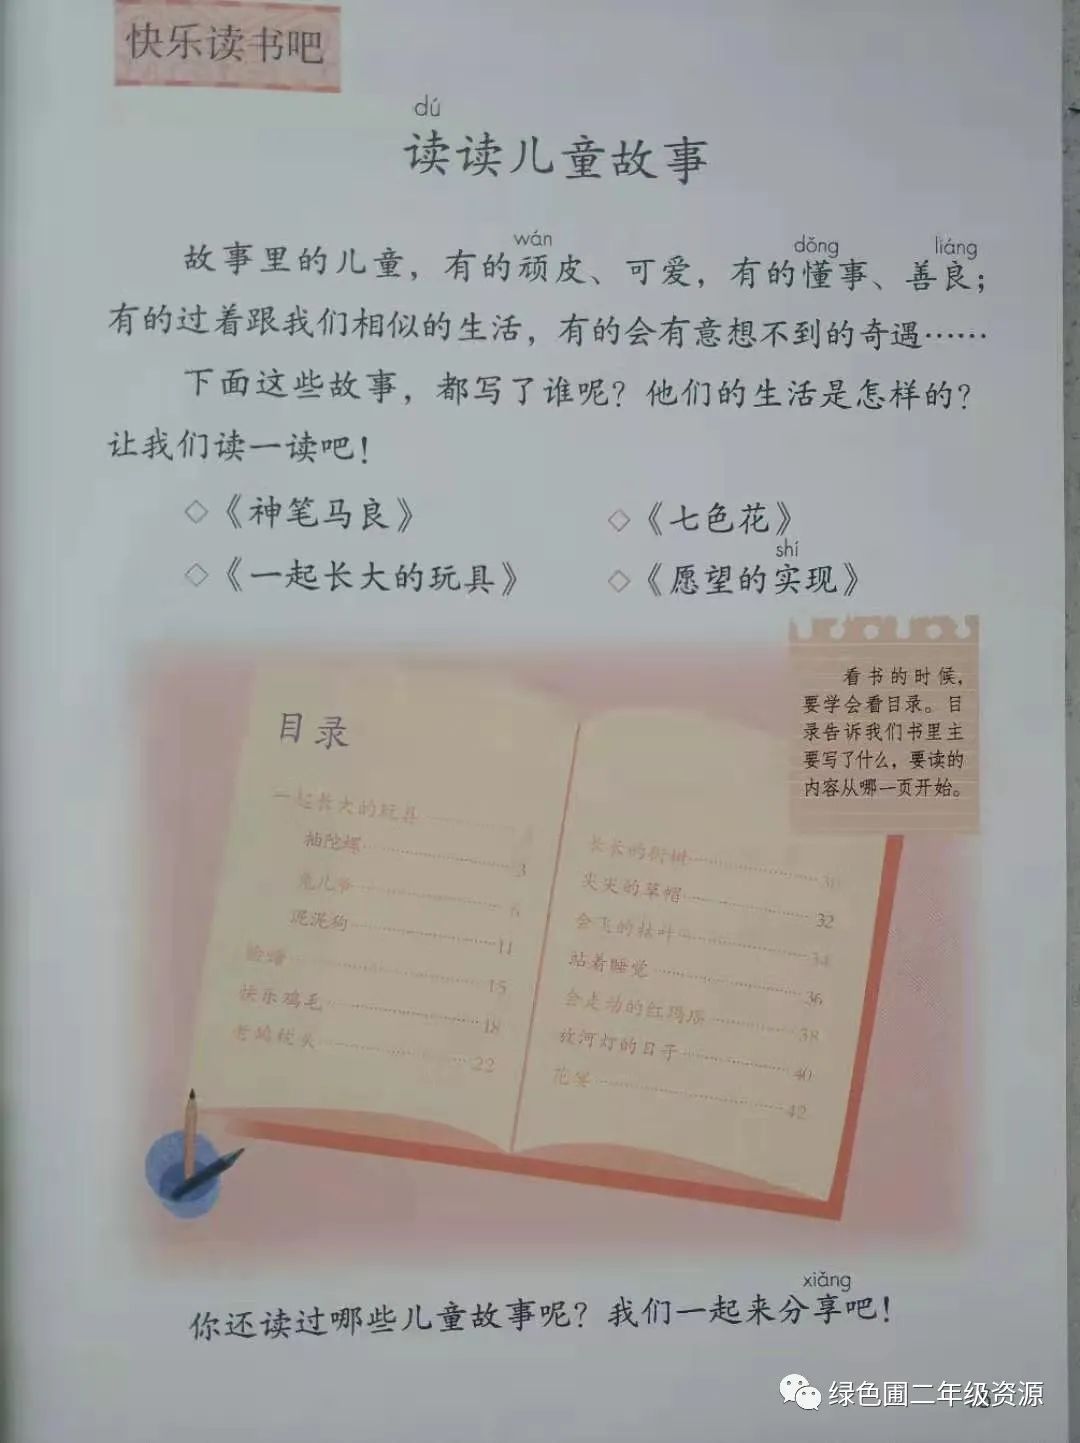 快乐读书吧
dú
读读儿童故事
wán dǒng liáng
故事里的儿童，有的顽皮、可爱，有的懂事、善良；
有的过着跟我们相似的生活，有的会有意想不到的奇遇……
下面这些故事，都写了谁呢？他们的生活是怎样的？
让我们读一读吧！
◇《神笔马良》 ◇《七色花》
shí
◇《一起长大的玩具》 ◇《愿望的实现》
看书的时候，
要学会看目录。目
录告诉我们书里主
要写了什么，要读的
内容从哪一页开始。
目录
一起长大的玩具
抽陀螺 3
兔儿爷 6
泥泥狗 11
15
快乐鸡毛 18
枕头 22
长长的街树 30
尖尖的草帽 32
会飞的 34
站着睡觉 36
会走动的红玛瑙 38
放河灯的日子 40
42
xiǎng
你还读过哪些儿童故事呢？我们一起来分享吧！
绿色圃二年级资源